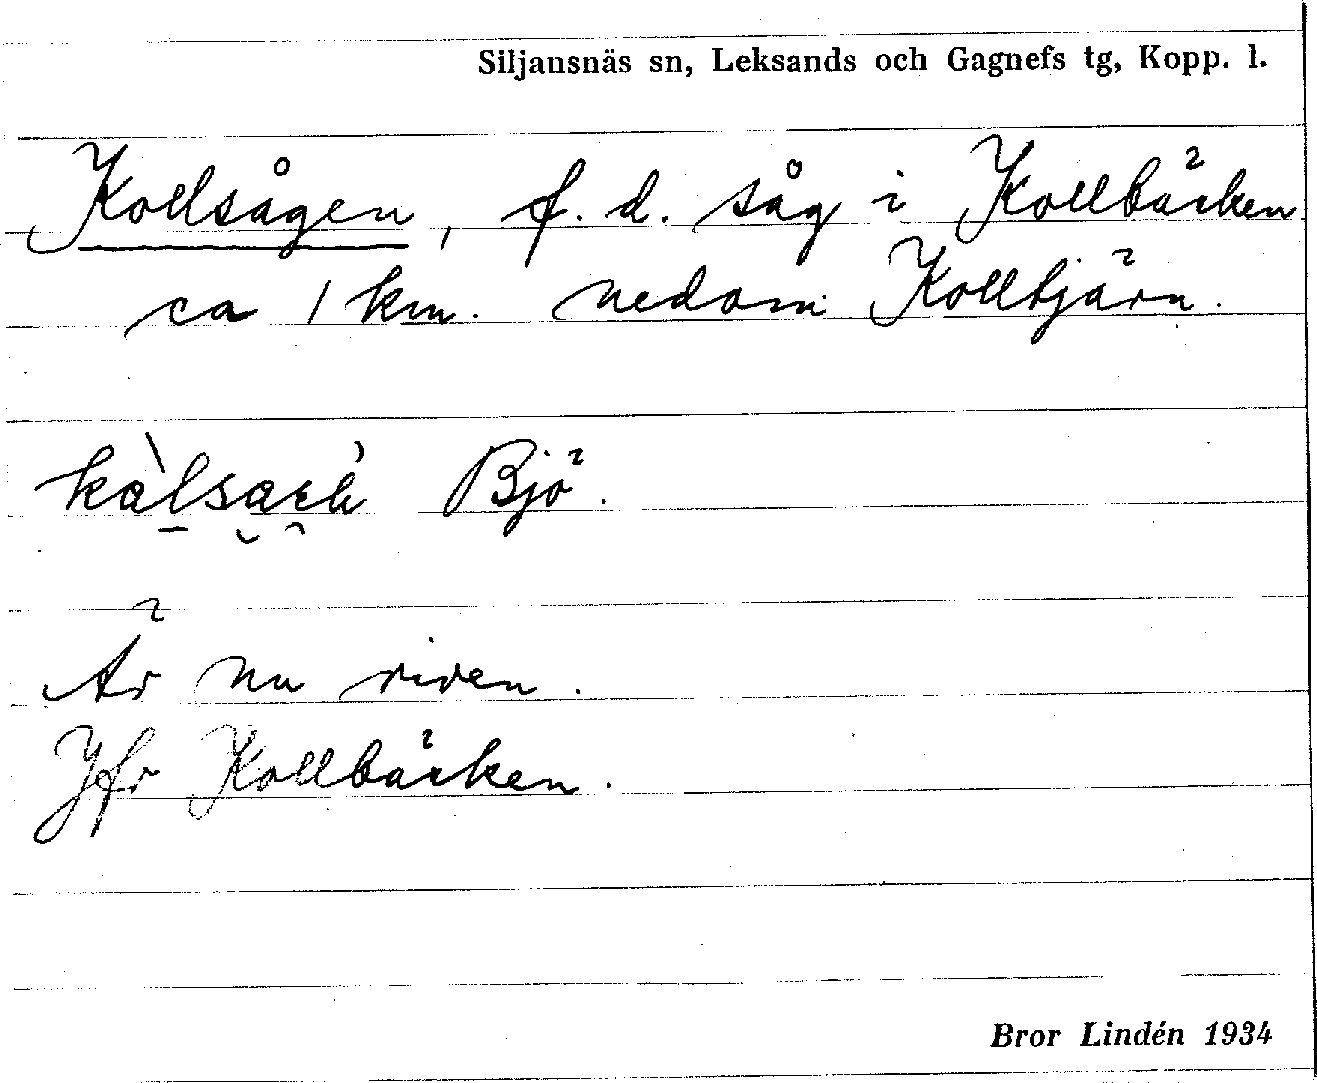 Siljansnäs sn, Leksands och Gagnefs tg, Kopp. l.
Kollsågen, f. d. såg i Kollbäcken
ca 1 km. nedom Kolltjärn.
Bjö.
Är nu riven.
Jfr Kollbäcken.
Bror Lindén 1934